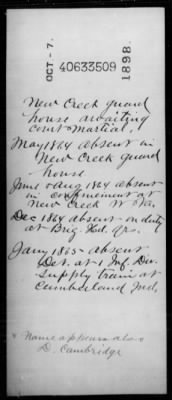 OCT-7.
40633509
1898.
New Creek guard
house awaiting
court Martial.
May 1864 absent in
New Creek guard
house
June & Aug 1864 absent
in confinement at
New Creek W Va.
Dec 1864 absent on duty
at Brig. Hd. Qrs.
Jan'y 1865 absent
Det. at 1 Inf. Div.
Supply train at
Cumberland Md.
Name appears also
D. Cambridge